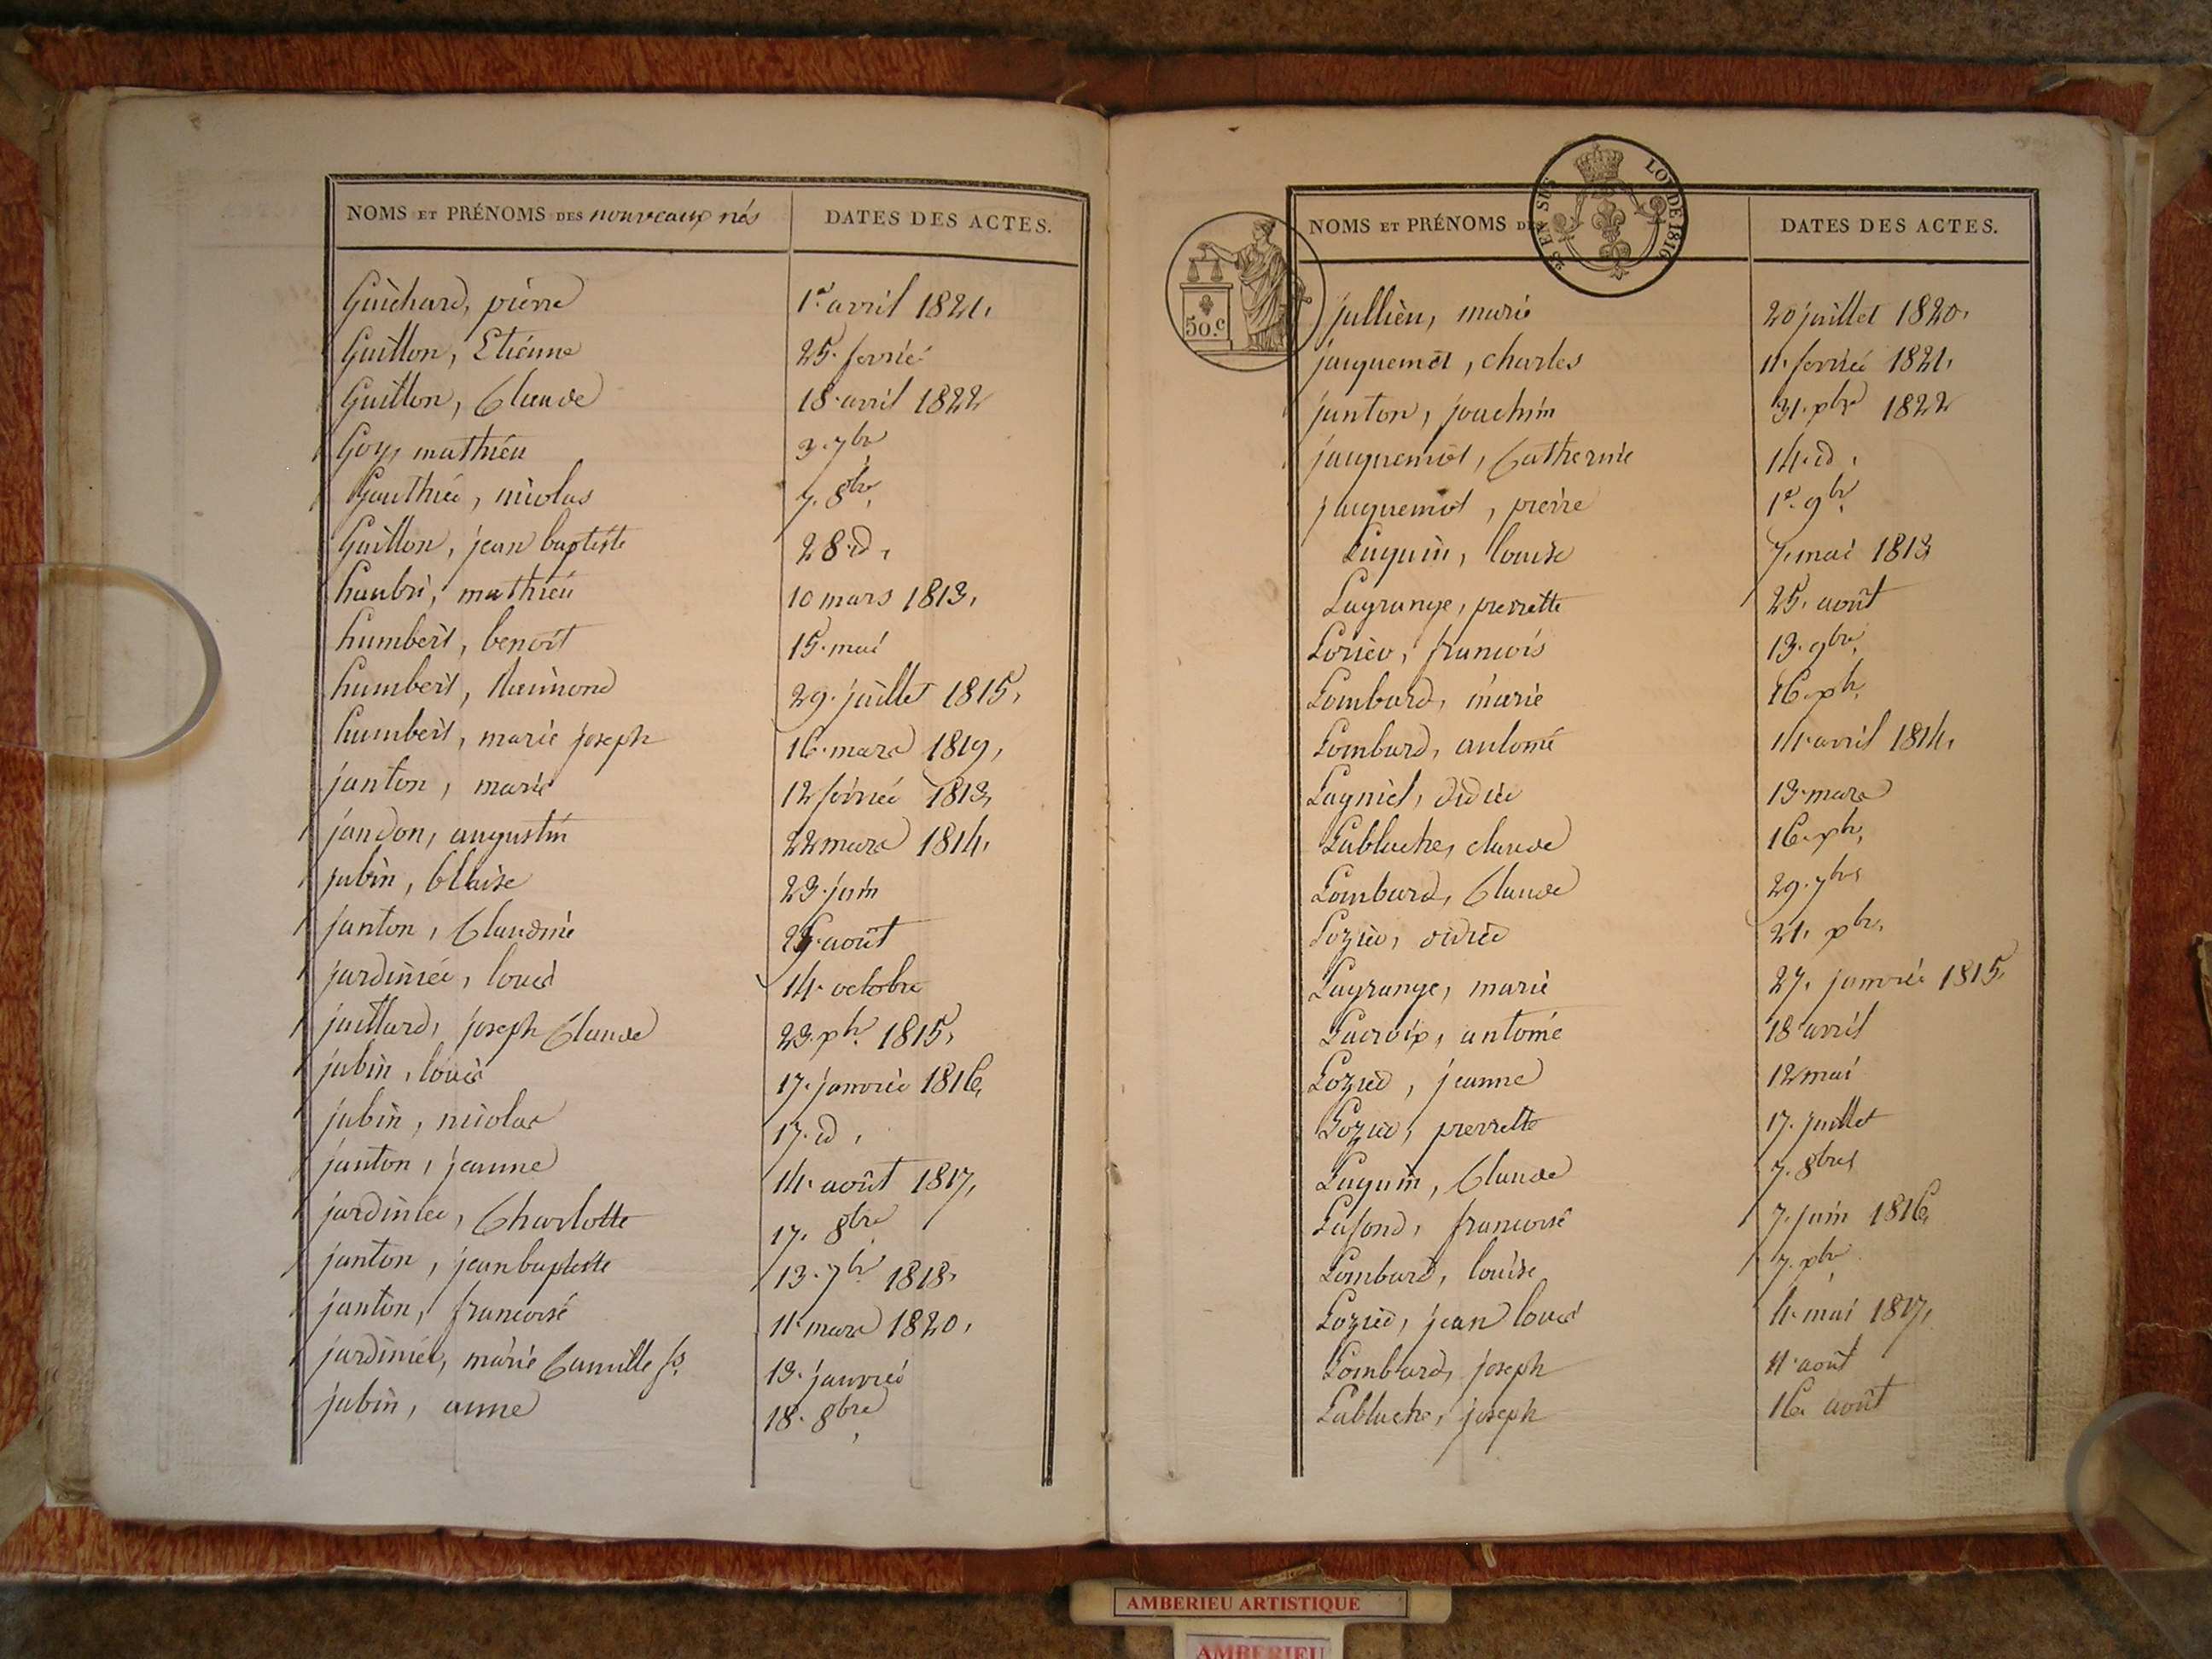 NOMS ET PRÉNOMS DES nouveaux nés DATES DES ACTES.
Guichard, pierre 1er avril 1821,
Guillon, Etienne 25. fevrier
Guillon, Claude 18. avril 1822
Goy, mathieu 3. 7bre
Gauthier, nicolas 7. 8bre,
Guillon, jean baptiste 28. id,
haubri, mathieu 10 mars 1813,
humbert, benoit 15. mai
humbert, Raimond 29. juillet 1815,
humbert, marie joseph 16. mars 1819,
janton, marie 12 fevrier 1813,
jandon, augustin 22 mars 1814,
jubin, blaise 23. juin
janton, Claudine août
jardinier, louis 14. octobre
juillard, joseph Claude 23. xbre 1815,
jubin, louis 17. janvier 1816,
jubin, nicolas 17. id,
janton, jeanne 14. août 1817,
jardinier, Charlotte 17. 8bre
janton, jean baptiste 13. 7bre 1818,
janton, francoise 11. mars 1820,
jardinier, marie Camille 13. janvier
jubin, anne 18. 8bre,
25 EN SUS LOI DE 1816
50.c
NOMS ET PRÉNOMS DES DATES DES ACTES.
jullien, marie 20 juillet 1820,
jacquemet, charles 11. fevrier 1821,
janton, joachim 31. xbre 1822
jacquemot, Catherine 14. id,
jacquemot, pierre 1er 9bre
Luquin, louise 7. mai 1813
Lagrange, pierrette 25. août
Lozier, francois 13. 9bre,
Lombard, marie 16. xbre,
Lombard, antoine avril 1814,
Lagniel, didier 13. mars
Labluche, claude 16. xbre,
Lombard, Claude 29. 7bre
Lozier, didier 21. xbre,
Lagrange, marie 27. janvier 1815,
Lacroix, antoine 18 avril
Lozier, jeanne 12 mai
Lozier, pierrette 17. juillet
Luquin, Claude 7. 8bre
Lafond, francoise 7. juin 1816,
Lombard, louise 7. xbre
Lozier, jean louis 4. mai 1817,
Lombard, joseph 11. août
Labluche, joseph 16. août
AMBERIEU ARTISTIQUE
AMBERIEU